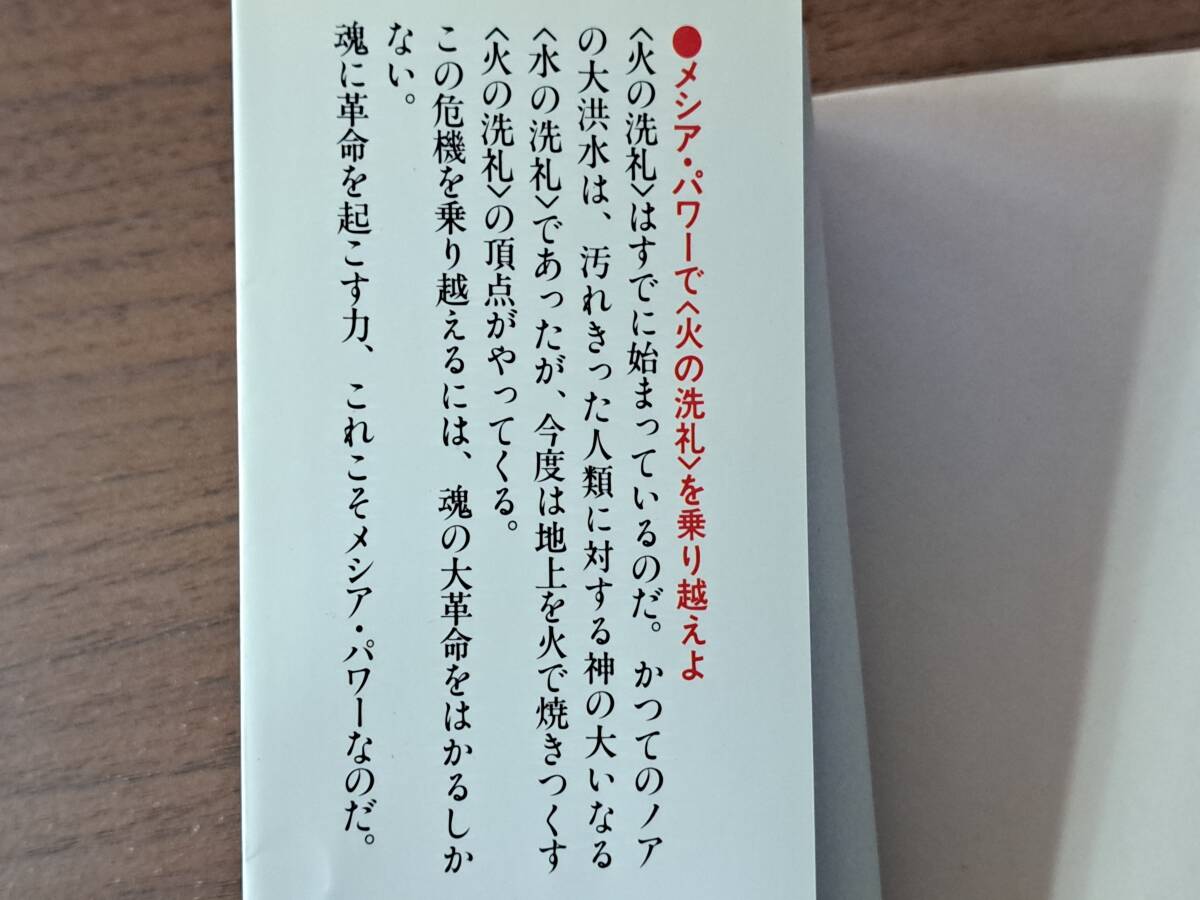 ●メシア・パワーで〈火の洗礼〉を乗り越えよ
〈火の洗礼〉はすでに始まっているのだ。かつてのノア
の大洪水は、汚れきった人類に対する神の大いなる
〈水の洗礼〉であったが、今度は地上を火で焼きつくす
〈火の洗礼〉の頂点がやってくる。
この危機を乗り越えるには、魂の大革命をはかるしか
ない。
魂に革命を起こす力、これこそメシア・パワーなのだ。